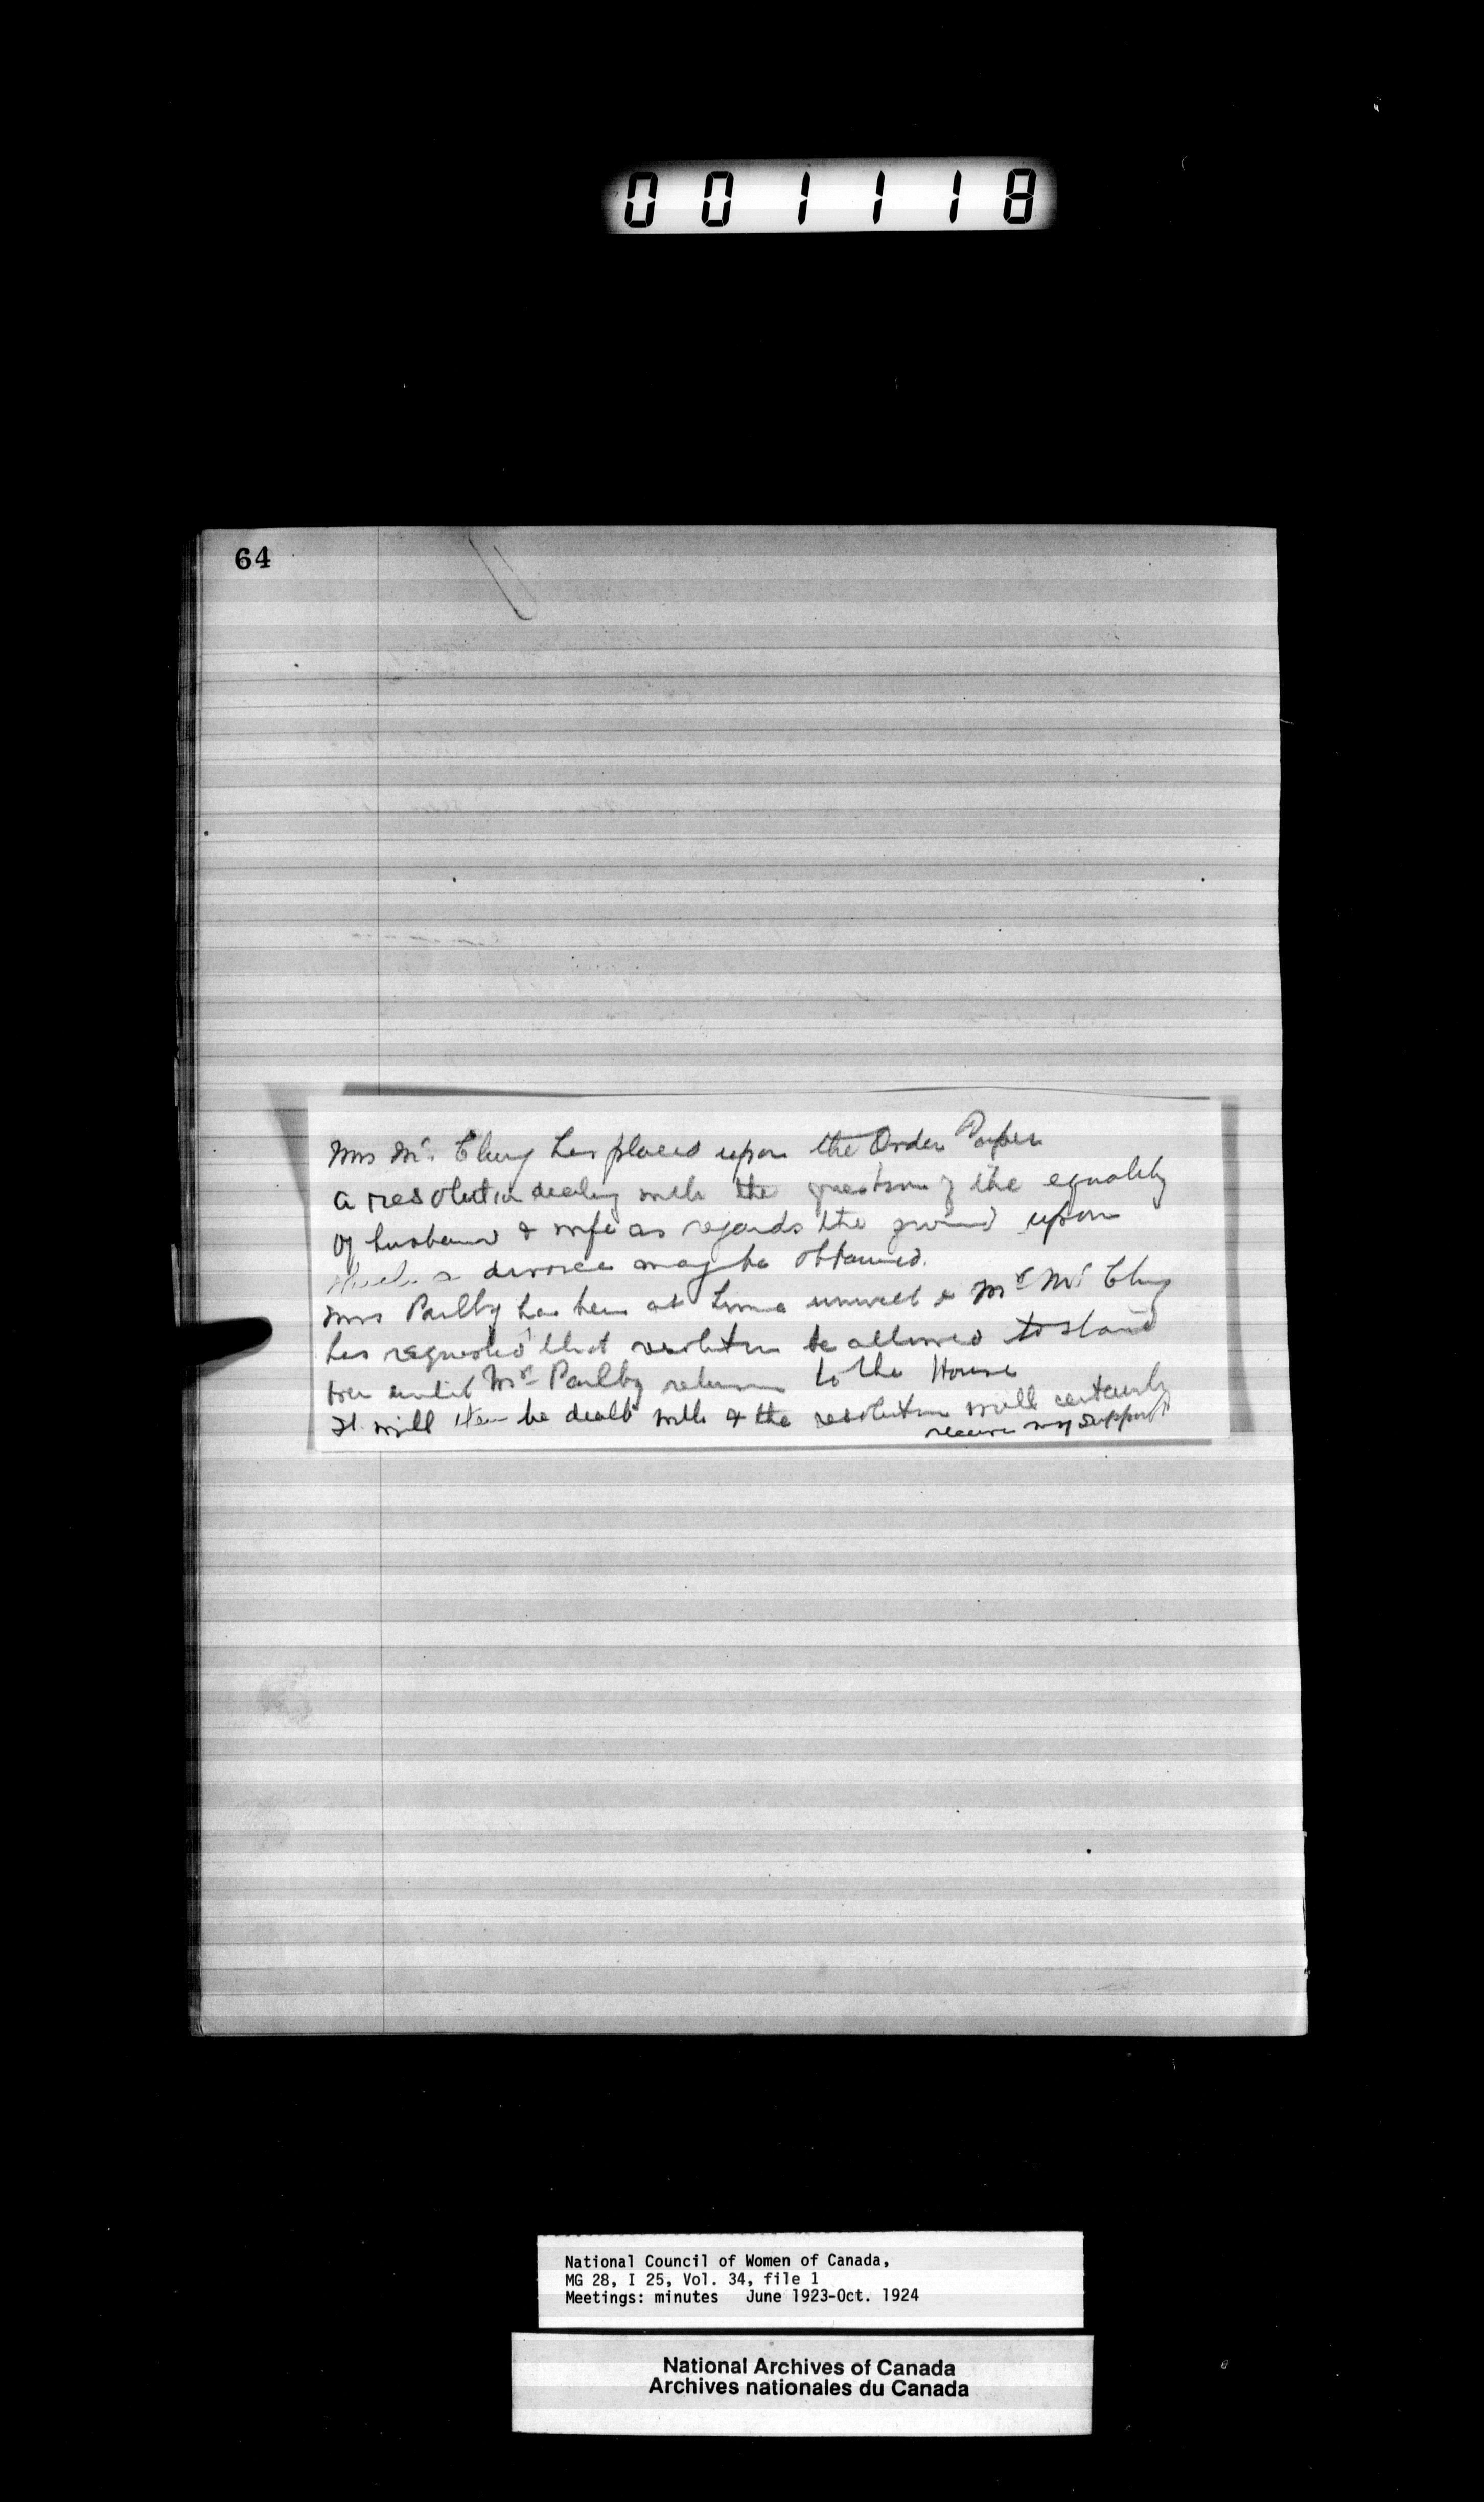 001118
64
Mrs Mc. Clung has placed upon the Order Paper
a resolution dealing with the question of the equality
of husband & wife as regards the ground upon
which a divorce may be obtained.
Mrs Parlby has been at home unwell & Mrs Mc Clung
has requested that resolution be allowed to stand
over until Mrs Parlby returns to the House
It will then be dealt with & the resolution will certainly
receive my support
National Council of Women of Canada,
MG 28, I 25, Vol. 34, file 1
Meetings: minutes June 1923-Oct. 1924
National Archives of Canada
Archives nationales du Canada